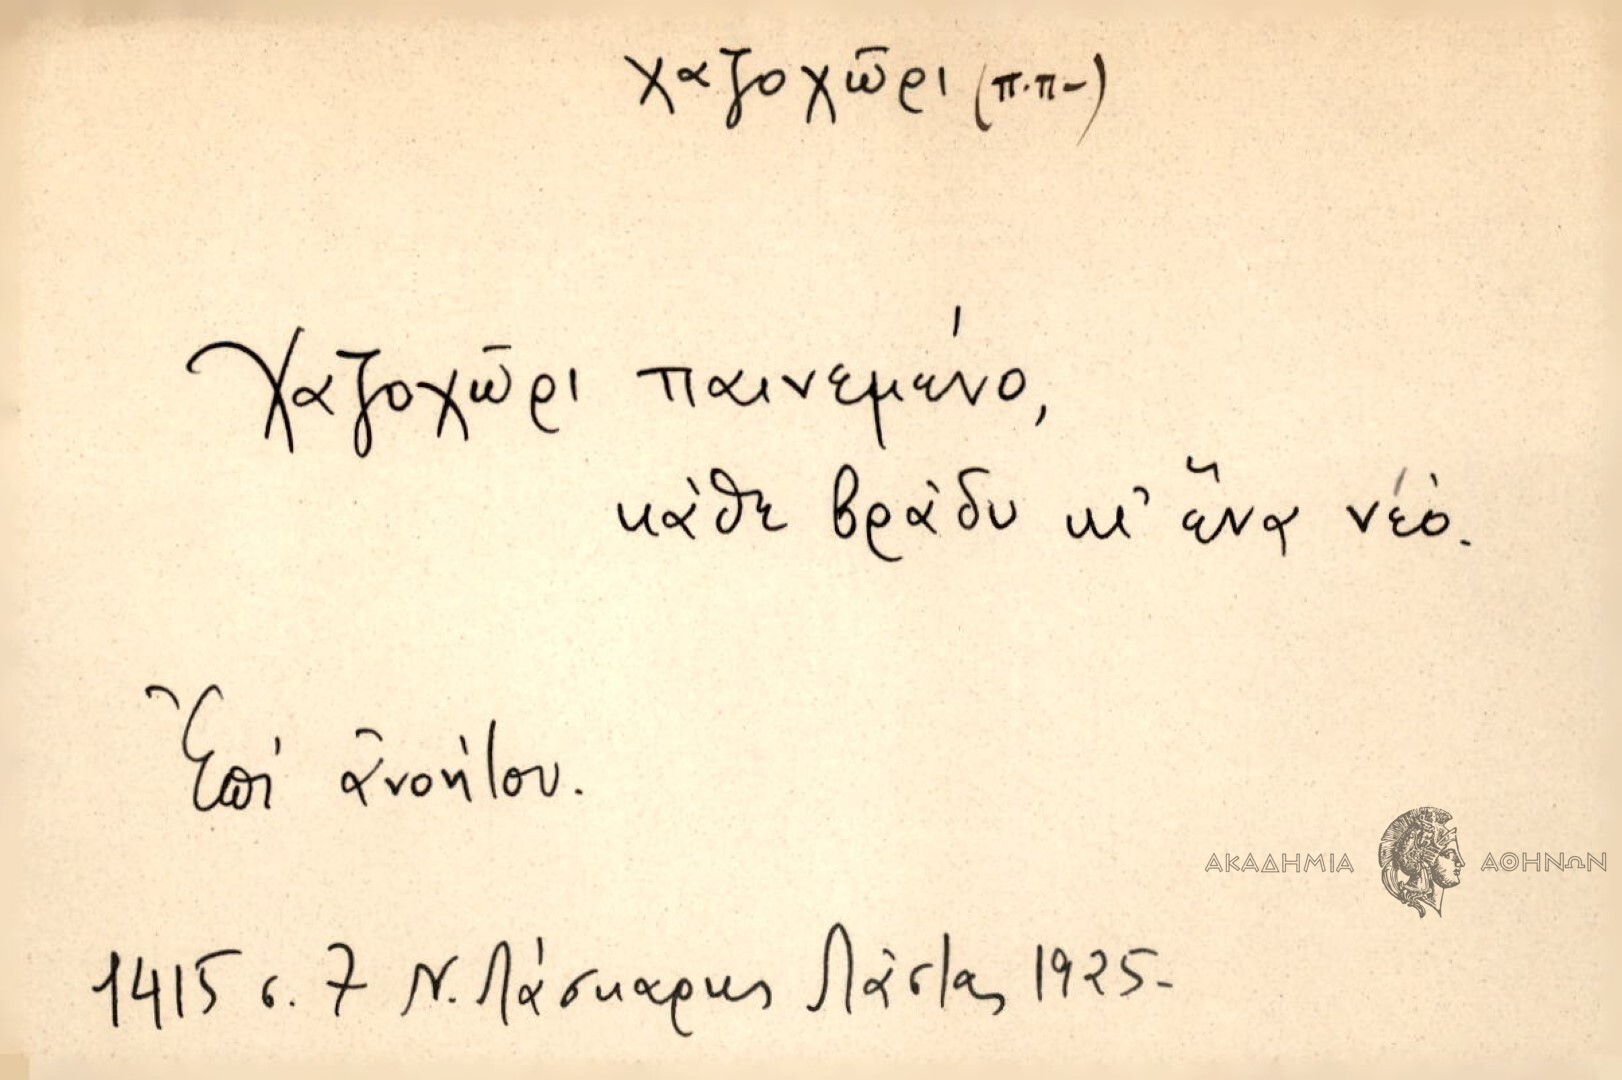 χαζοχῶρι (π.π-)
Χαζοχῶρι παινεμένο,
κάθε βράδυ κι' ἕνα νέο.
Ἐπὶ ἀνοήτου.
ΑΚΑΔΗΜΙΑ ΑΘΗΝΩΝ
1415 σ. 7 Ν. Λάσκαρης Λάστας 1925-